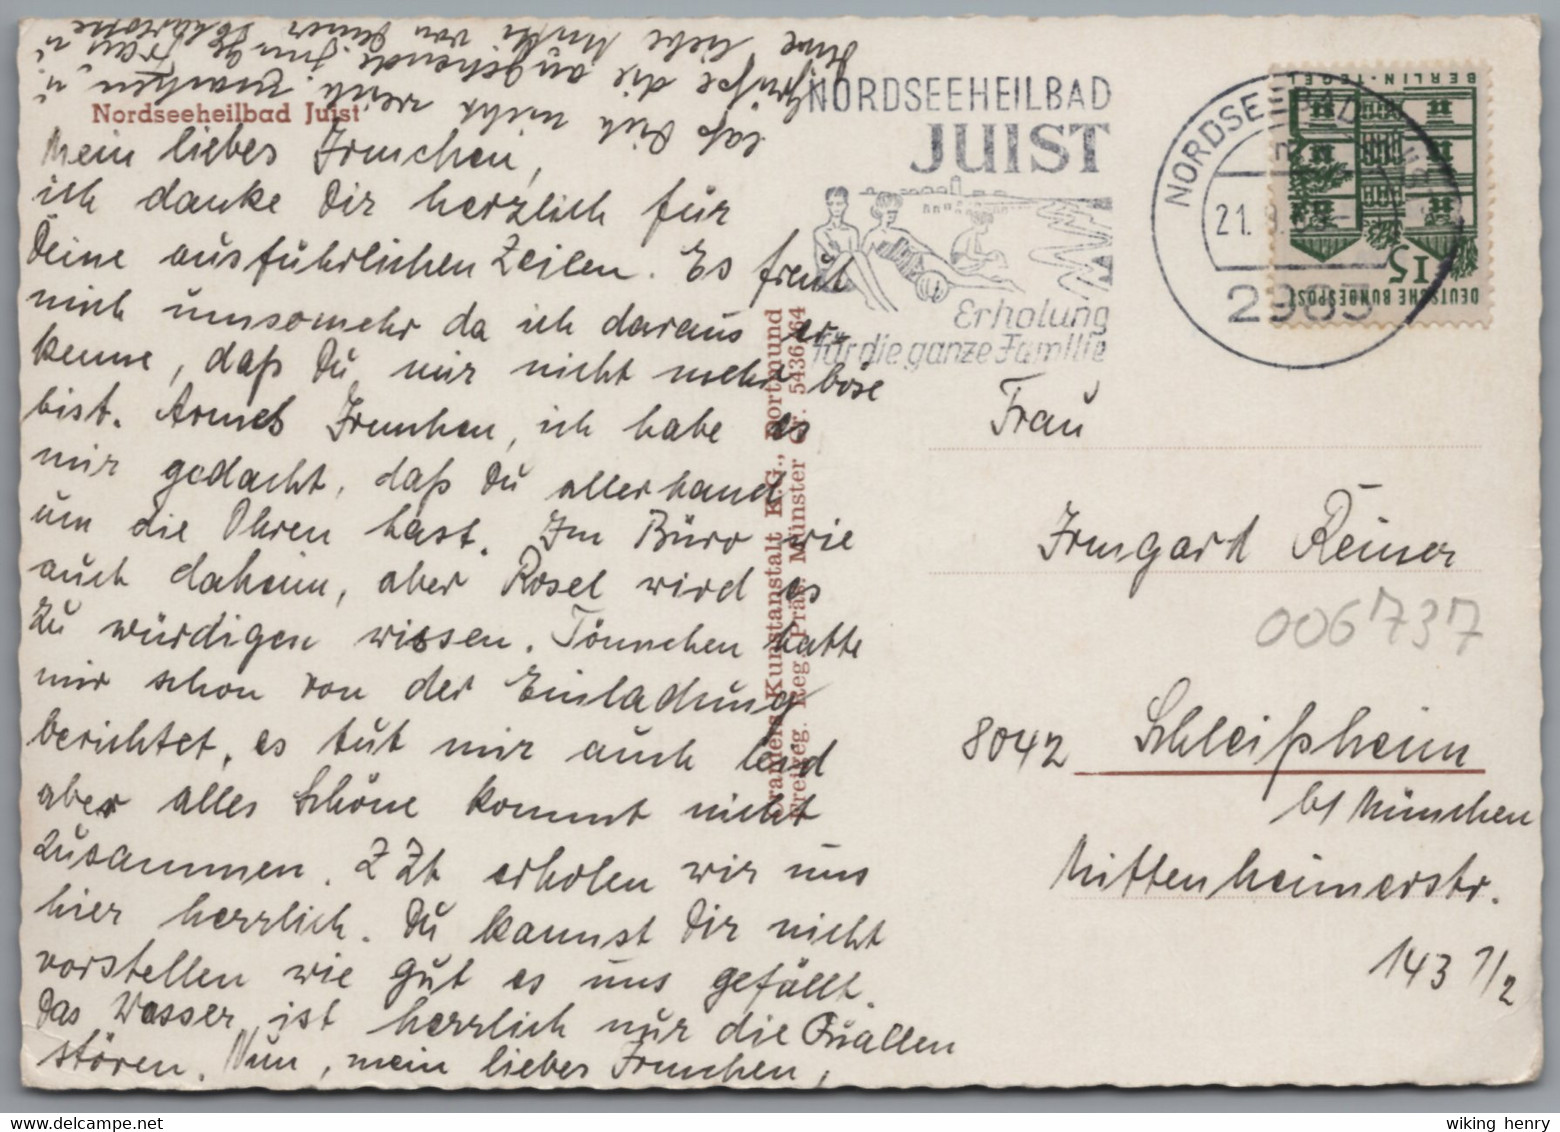 Nordseeheilbad Juist
Mein liebes Irmchen,
ich danke Dir herzlich für
Deine ausführlichen Zeilen. Es freut
mich umsomehr da ich daraus er-
kenne, daß Du mir nicht mehr böse
bist. Armes Irmchen, ich habe es
mir gedacht, daß Du allerhand
um die Ohren hast. Im Büro wie
auch daheim, aber Rosel wird es
zu würdigen wissen. Tönnchen hatte
mir schon von der Einladung
berichtet, es tut mir auch leid
aber alles Schöne kommt nicht
zusammen. Z Zt erholen wir uns
hier herrlich. Du kannst Dir nicht
vorstellen wie gut es uns gefällt.
Das Wasser ist herrlich nur die Quallen
stören. Nun, mein liebes Irmchen,
laß Dich nicht
Grüße die
Deine liebe Mutti von Deiner
Kunstanstalt K.G., Dortmund
Freigeg. Reg. Präs. Münster Nr. 5436/64
NORDSEEHEILBAD
JUIST
Erholung
für die ganze Familie
NORDSEEBAD
21.
2983
BERLIN-TEGEL
15
DEUTSCHE BUNDESPOST
Frau
Irmgard Reiner
006737
8042 Schleißheim
b/ München
Mittenheimerstr.
143 1/2
wiking henry